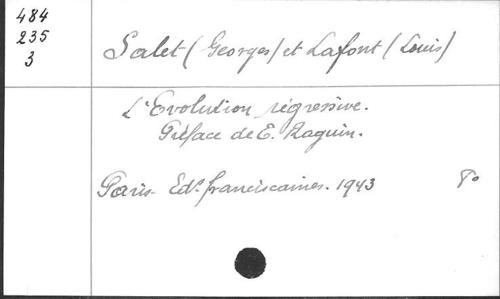 484
235
3
Salet (Georges) et Lafont (Louis)
L'Evolution régressive.
Préface de E. Raguin.
Paris. Edns franciscaines. 1943 8°